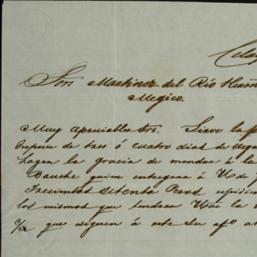 Celay
Sres Martinez del Río Herm
Megico.
Muy apreciables Sres. Sirve la p
de tres ó cuatro dias de llega
hagan la gracia de mandar á la
Bauche quien entregará á U de
Trecientos setenta Pesos
los mismos que la
que siguen á este su afº a